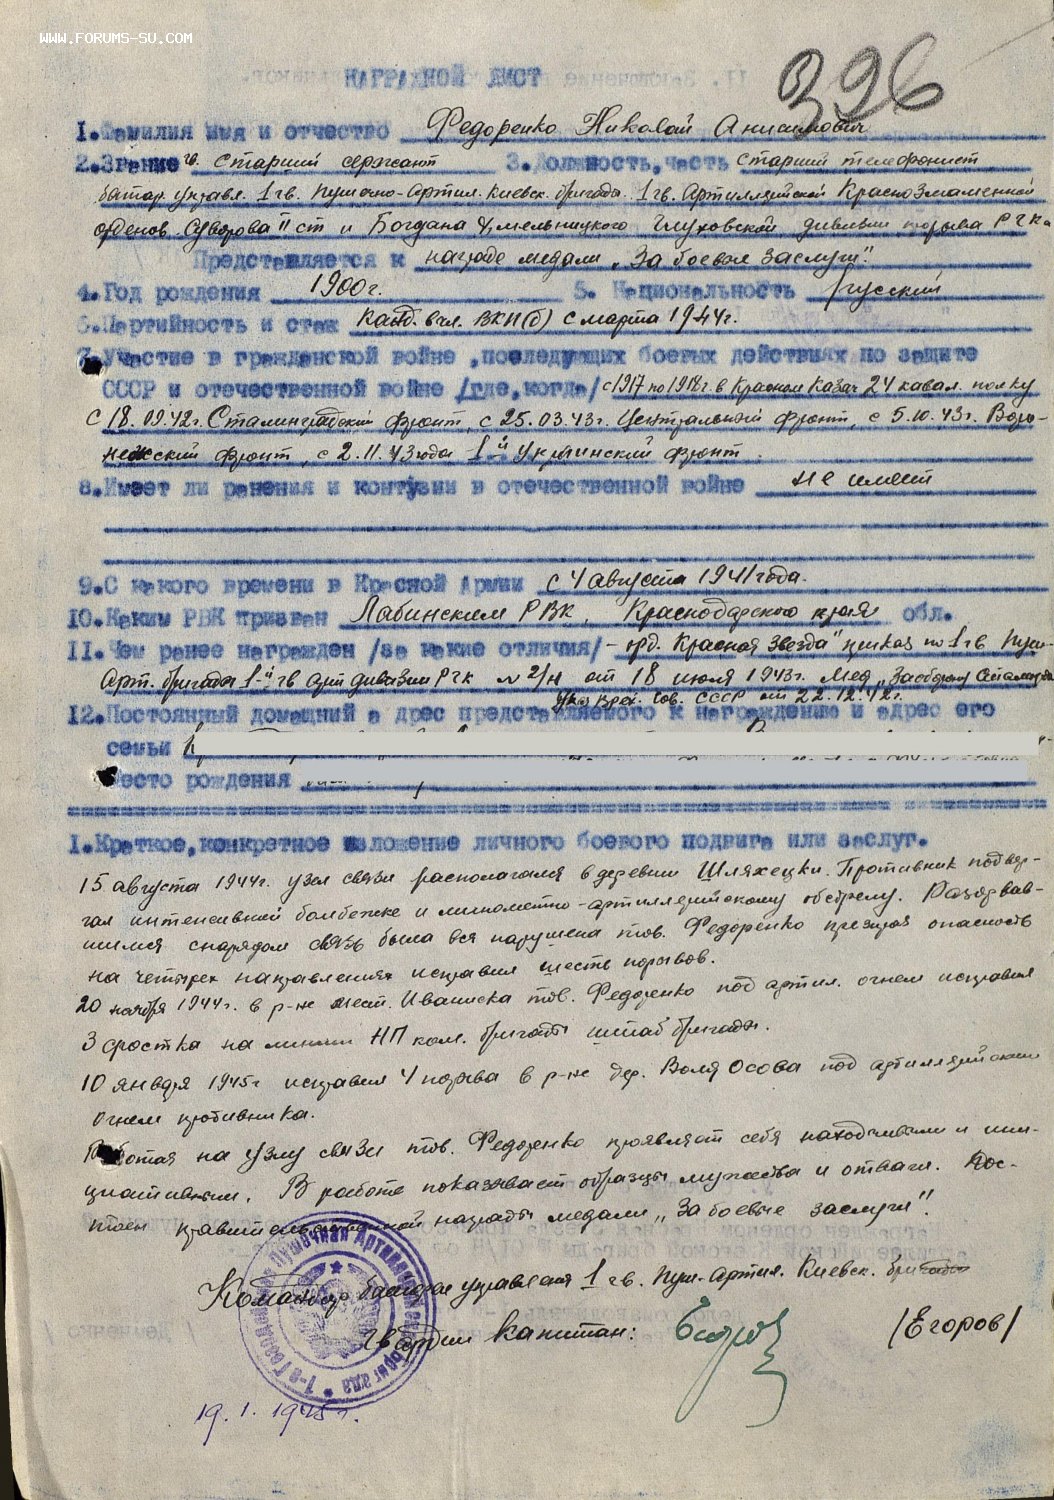 WWW.FORUMS-SU.COM
326
НАГРАДНОЙ ЛИСТ
1.Фамилия имя и отчество Федоренко Николай Анисимович
2.Звание гв. старший сержант 3.Должность, часть старший телефонист
батар. управл. 1 гв. пушечно-артил. Киевск. бригады 1 гв. Артиллерийской Краснознаменной
орденов Суворова II ст и Богдана Хмельницкого Глуховской дивизии прорыва РГК
Представляется к награде медали „За боевые заслуги".
4.Год рождения 1900г. 5. Национальность русский
6.Партийность и стаж канд. в чл. ВКП(б) с марта 1944г.
7.Участие в гражданской войне ,последующих боевых действиях по защите
СССР и отечественной войне /где,когда/ с 1917 по 1918г. в Красном Казач 24 кавал. полку
с 18.09.42г. Сталинградский фронт, с 25.03.43г. Центральный фронт, с 5.10.43г. Воро-
нежский фронт, с 2.11.43 года 1й Украинский фронт.
8.Имеет ли ранения и контузии в отечественной войне не имеет
9.С какого времени в Красной Армии с 4 августа 1941 года.
10.Каким РВК призван Лабинским РВК, Краснодарского края обл.
11.Чем ранее награжден /за какие отличия/ - орд. „Красная звезда" приказ по 1 гв пуш-
Арт. бригады 1-й гв Арт дивизии РГК №2/н от 18 июля 1943г. Мед „За оборону Сталинграда
Указ През. Сов. СССР от 22.12.42г.
12.Постоянный домашний а дрес представляемого к награждению и адрес его
семьи
Место рождения
1.Краткое,конкретное изложение личного боевого подвига или заслуг.
15 августа 1944г. узел связи располагался в деревни Шляхецки. Противник подвер-
гал интенсивной бомбежке и минометно-артиллерийскому обстрелу. Разорвав-
шимся снарядом связь была вся нарушена тов. Федоренко презирая опасность
на четырех направлениях исправил шесть порывов.
20 ноября 1944г. в р-не мест. Иваниска тов. Федоренко под артил. огнем исправил
3 сростка на линии НП ком. бригады штаб бригады.
10 января 1945г исправил 4 порыва в р-не дер. Воля Осова под артиллерийским
огнем противника.
Работая на узлу связи тов. Федоренко проявляет себя находчивым и ини-
циативным. В работе показывает образцы мужества и отваги. Дос-
тоен правительственной награды медали „За боевые заслуги".
Командир батареи управления 1 гв. Пуш. Артил. Киевск. бригады
гвардии капитан: /Егоров/
19.1.1945г.